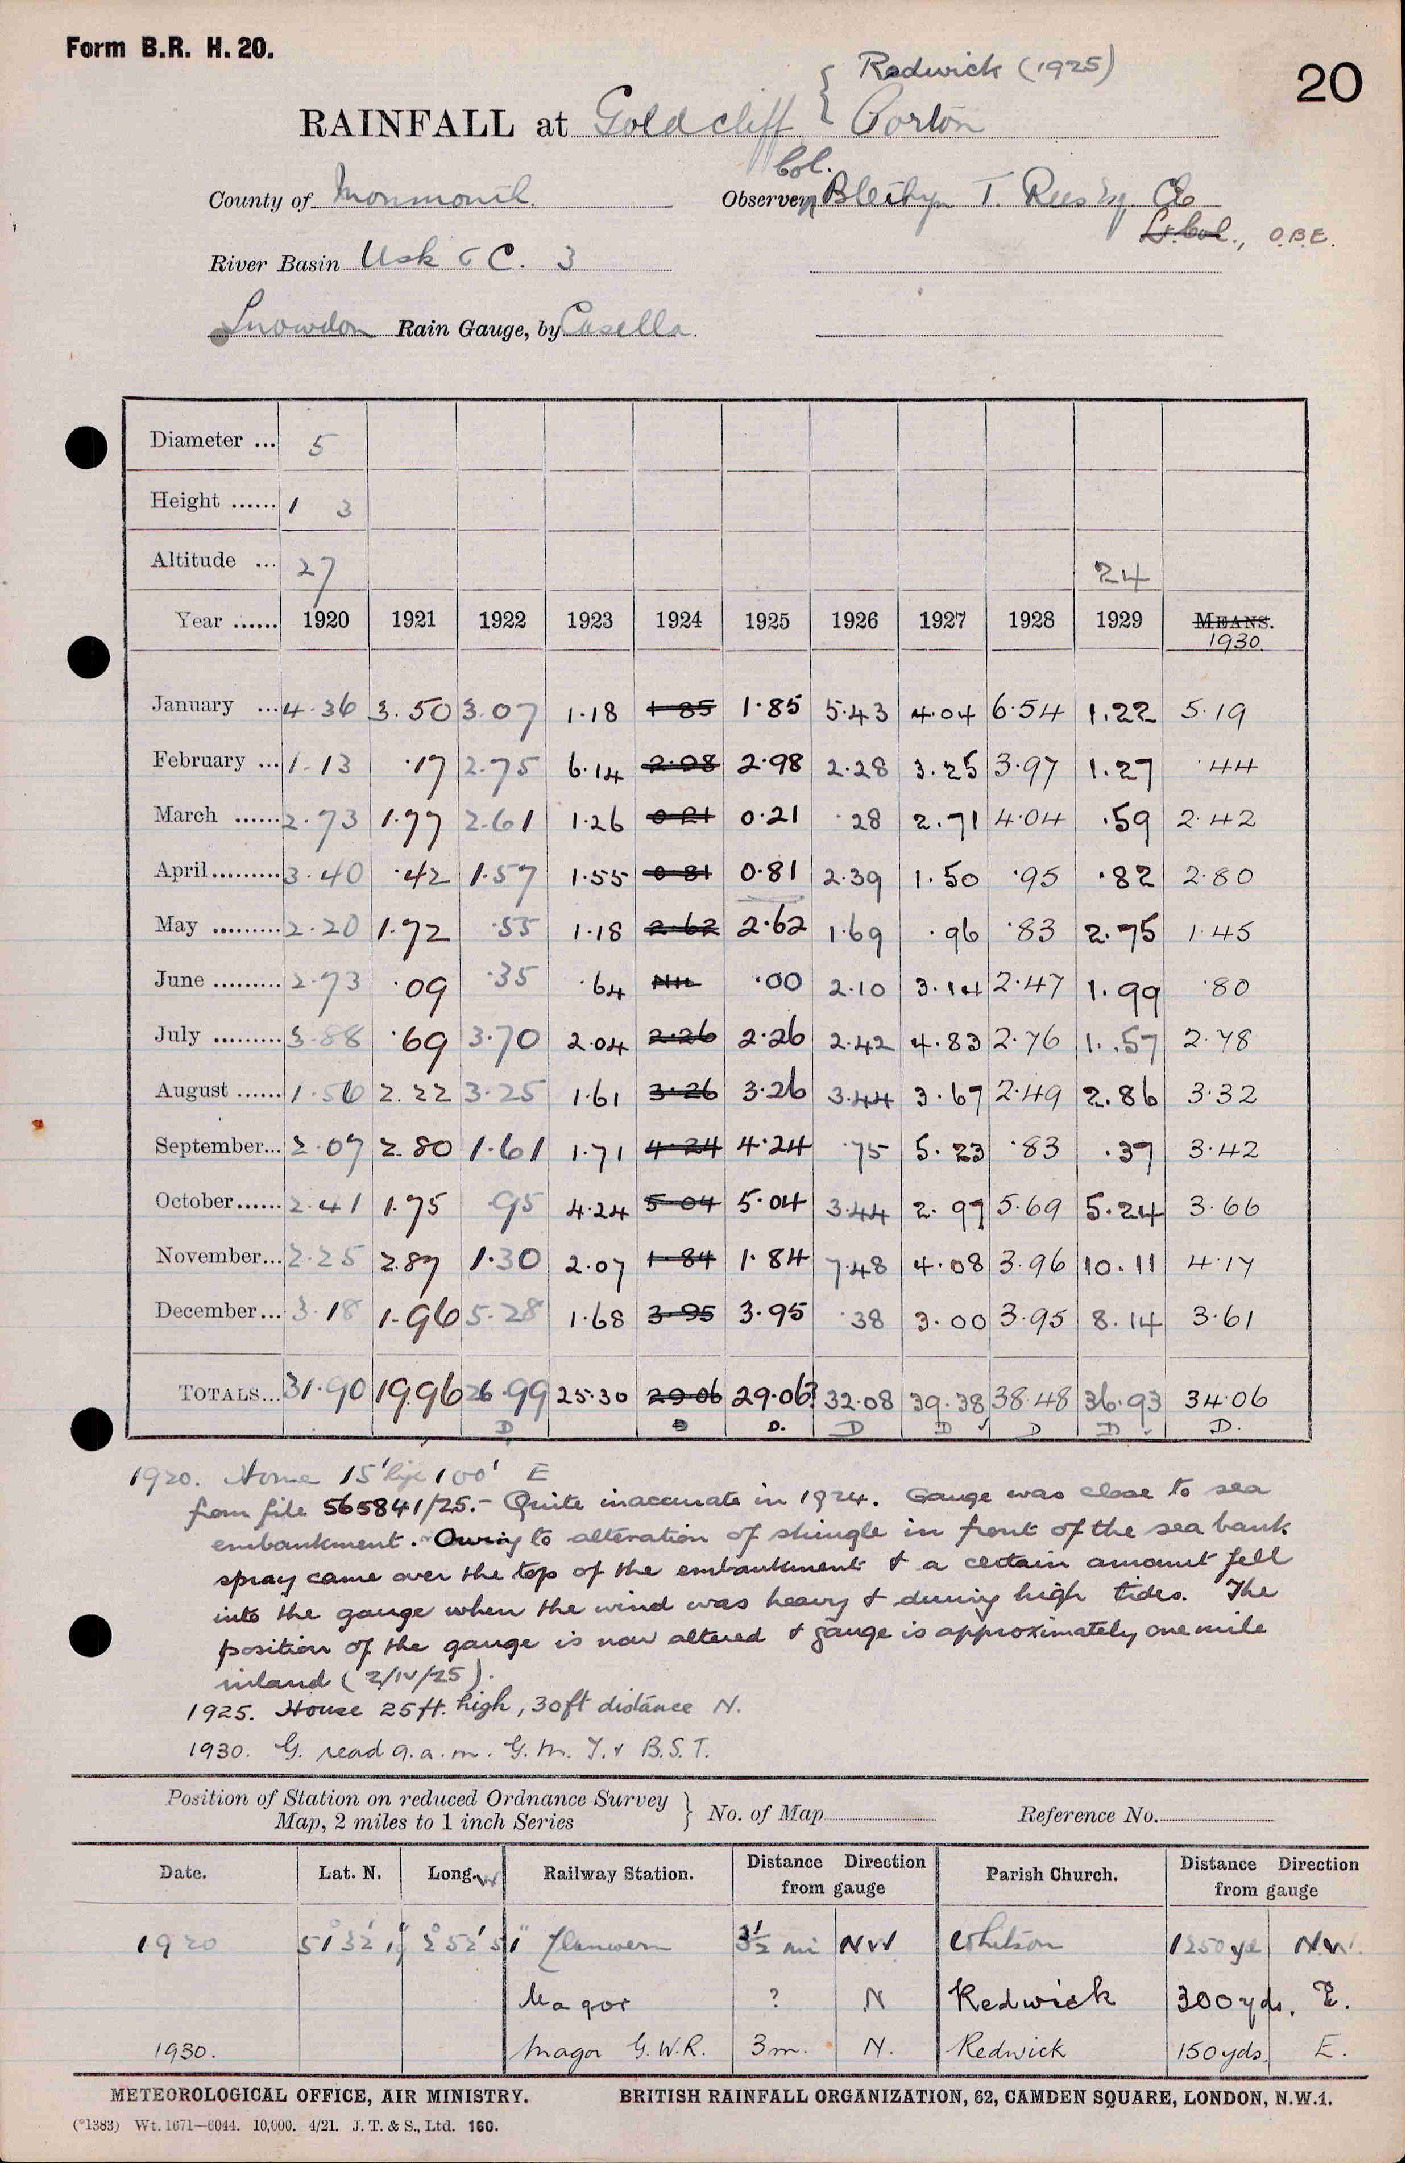 Form B.R. H. 20.
20
Redwick (1925)
RAINFALL at Goldcliff { Porton
County of Monmouth
Col.
Observer, Blethyn T. Rees Esq
Lt. Col., O.B.E.
River Basin Usk & C. 3
Snowdon Rain Gauge, by Casella.
Diameter ... 5
Height ...... 1 3
Altitude ... 27 24
Year ...... 1920 1921 1922 1923 1924 1925 1926 1927 1928 1929 MEANS.
1930.
January ... 4.36 3.50 3.07 1.18 1.85 1.85 5.43 4.04 6.54 1.22 5.19
February ... 1.13 .17 2.75 6.14 2.98 2.98 2.28 3.25 3.97 1.27 .44
March ...... 2.73 1.77 2.61 1.26 0.21 0.21 .28 2.71 4.04 .59 2.42
April ......... 3.40 .42 1.57 1.55 0.81 0.81 2.39 1.50 .95 .82 2.80
May ......... 2.20 1.72 .55 1.18 2.62 2.62 1.69 .96 .83 2.75 1.45
June ......... 2.73 .09 .35 .64 NIL .00 2.10 3.14 2.47 1.99 .80
July ......... 3.88 .69 3.70 2.04 2.26 2.26 2.42 4.83 2.76 1.57 2.78
August ...... 1.56 2.22 3.25 1.61 3.26 3.26 3.44 3.67 2.49 2.86 3.32
September... 2.07 2.80 1.61 1.71 4.24 4.24 .75 5.23 .83 .37 3.42
October...... 2.41 1.75 .95 4.24 5.04 5.04 3.44 2.97 5.69 5.24 3.66
November... 2.25 2.87 1.30 2.07 1.84 1.84 7.48 4.08 3.96 10.11 4.17
December... 3.18 1.96 5.28 1.68 3.95 3.95 .38 3.00 3.95 8.14 3.61
TOTALS... 31.90 19.96 26.99 25.30 29.06 29.06? 32.08 39.38 38.48 36.93 34.06
D D D. D D D D D.
1920. Home 15' high 100' E
from file 565841/25.- Quite inaccurate in 1924. Gauge was close to sea
embankment. Owing to alteration of shingle in front of the sea bank
spray came over the top of the embankment & a certain amount fell
into the gauge when the wind was heavy & during high tides. The
position of the gauge is now altered & gauge is approximately one mile
inland (2/IV/25).
1925. House 25ft. high, 30ft distance N.
1930. G. read 9.a.m. G.M.T. & B.S.T.
Position of Station on reduced Ordnance Survey
Map, 2 miles to 1 inch Series } No. of Map Reference No.
Date. Lat. N. Long. W Railway Station. Distance Direction from gauge Parish Church. Distance Direction from gauge
1920 51° 32' 19" 2° 52' 51" Llanwern 3½ mi NW Whitson 1250 yd N.W.
Magor ? N Redwick 300 yds. E.
1930. Magor G.W.R. 3m. N. Redwick 150 yds. E.
METEOROLOGICAL OFFICE, AIR MINISTRY. BRITISH RAINFALL ORGANIZATION, 62, CAMDEN SQUARE, LONDON, N.W.1.
(*1383) Wt. 1671—6044. 10,000. 4/21. J. T. & S., Ltd. 160.